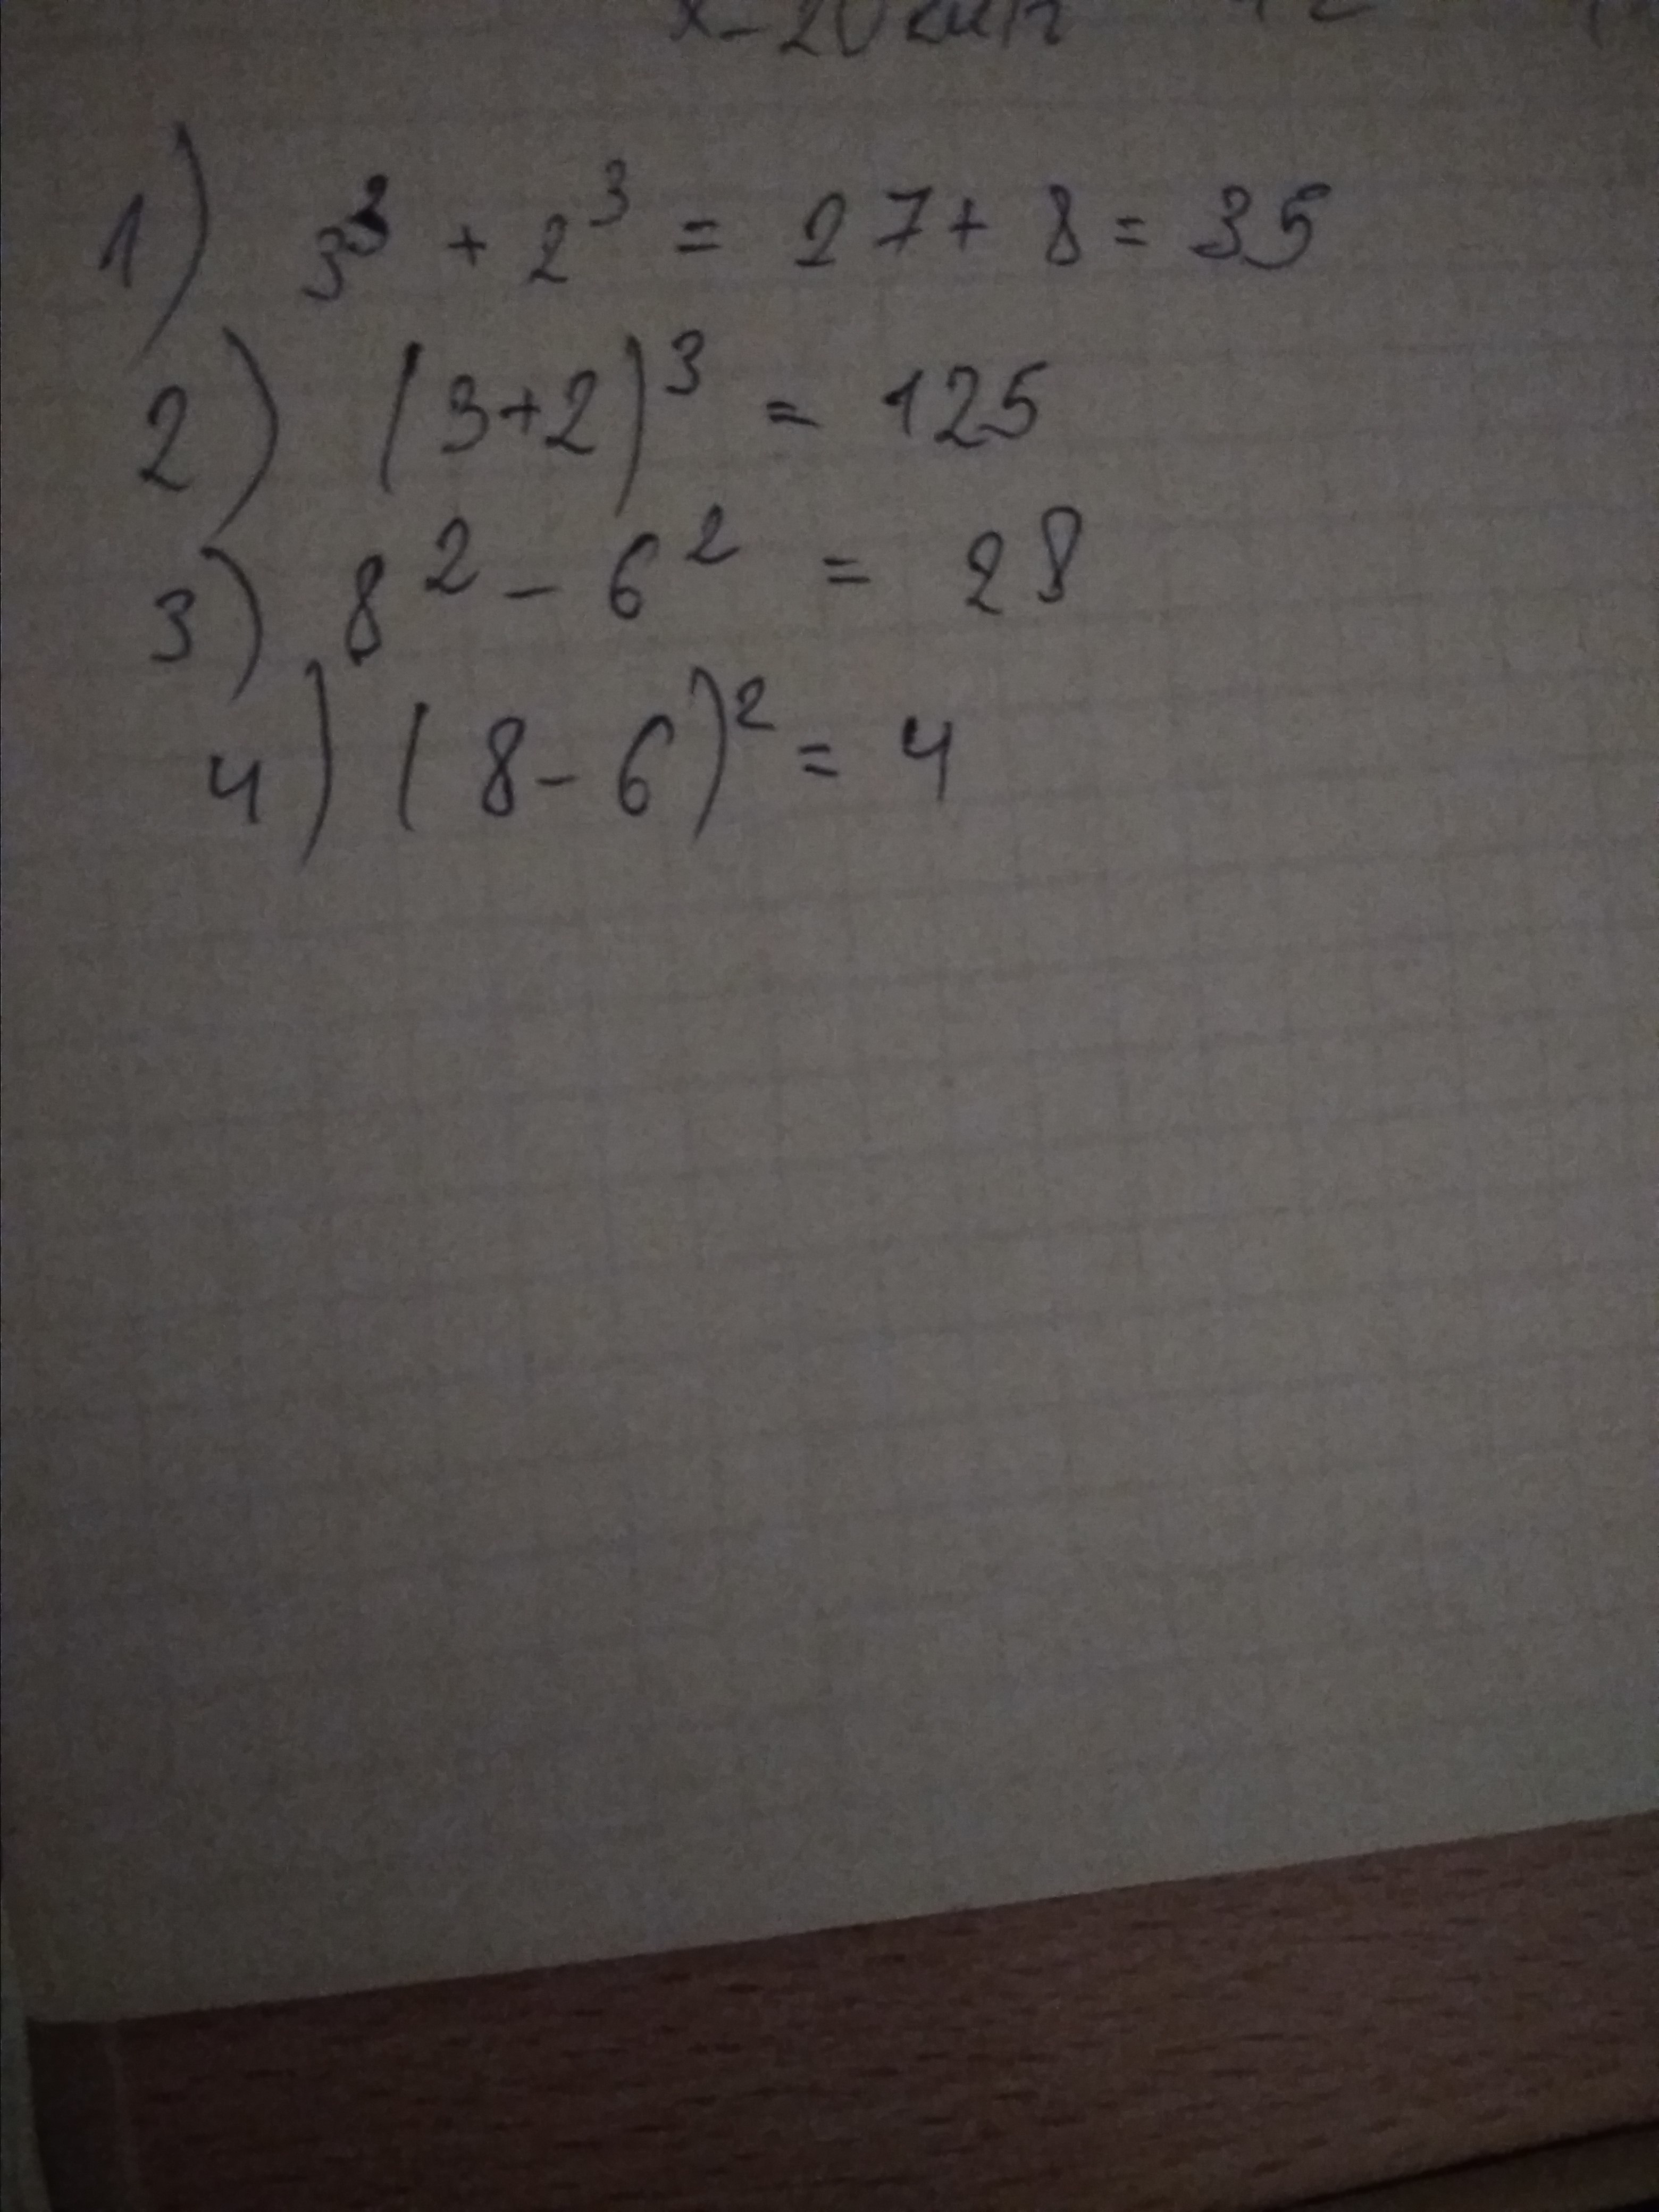 1) 3³ + 2³ = 27 + 8 = 35
2) (3+2)³ = 125
3) 8² - 6² = 28
4) (8 - 6)² = 4